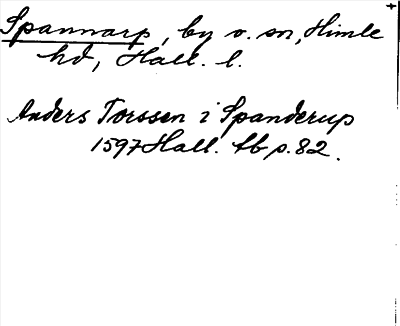 Spannarp, by o. sn, Himle
hd, Hall. l.
Anders Torssen i Spanderup
1597 Hall. tb p. 82.